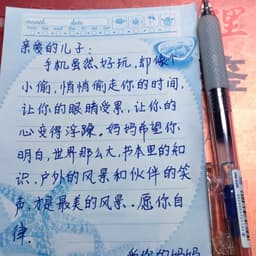 month date
亲爱的儿子:
手机虽然好玩,却像个
小偷,悄悄偷走你的时间,
让你的眼睛受累,让你的
心变得浮躁。妈妈希望你
明白,世界那么大,书本里的知
识、户外的风景和伙伴的笑
声,才是最美的风景。愿你自
律.
爱你的妈妈